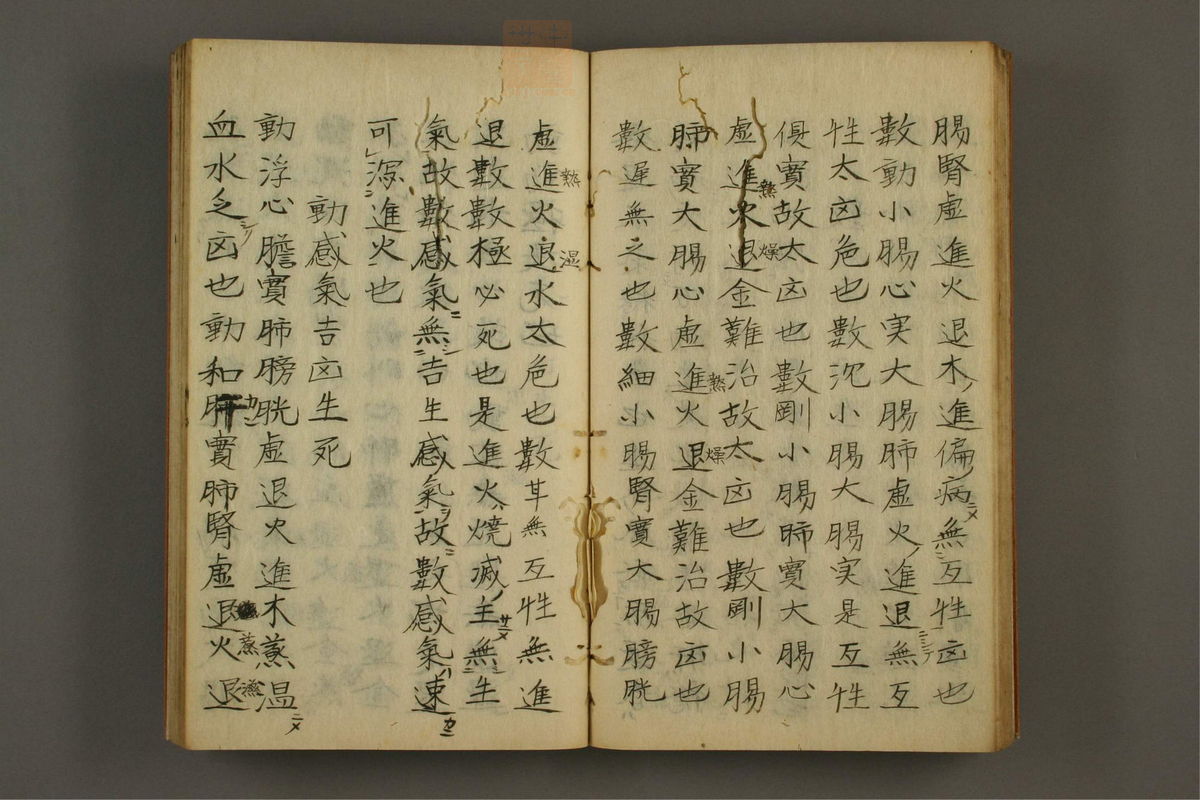 腸腎虚進火退木ノ進偏ノ病ニメ無ニ互性凶也
數動小腸心実大腸肺虚火ノ進退ニシテ無互
性太凶危也數沉小腸大腸実是互性
俱實故太凶也數剛小腸肺實大腸心
虚進熱火退燥金難治故太凶也數剛小腸
肺實大腸心虚進熱火退燥金難治故凶也
數遅無之也數細小腸腎實大腸膀胱
虚進熱火退湿水太危也數芤無互性無進
退數數極必死也是進火燒滅ノ主サメ無生
氣故數感氣ニ無ニシ吉生感氣シ故ニ數感氣ハ速カニ
可レ瀉ニ進火ヲ也
動感氣吉凶生死
動浮心膽實肺膀胱虚退火進木蒸温ニメ
血水乏シ凶也動和カニ肝實肺腎虚退蒸火退濕